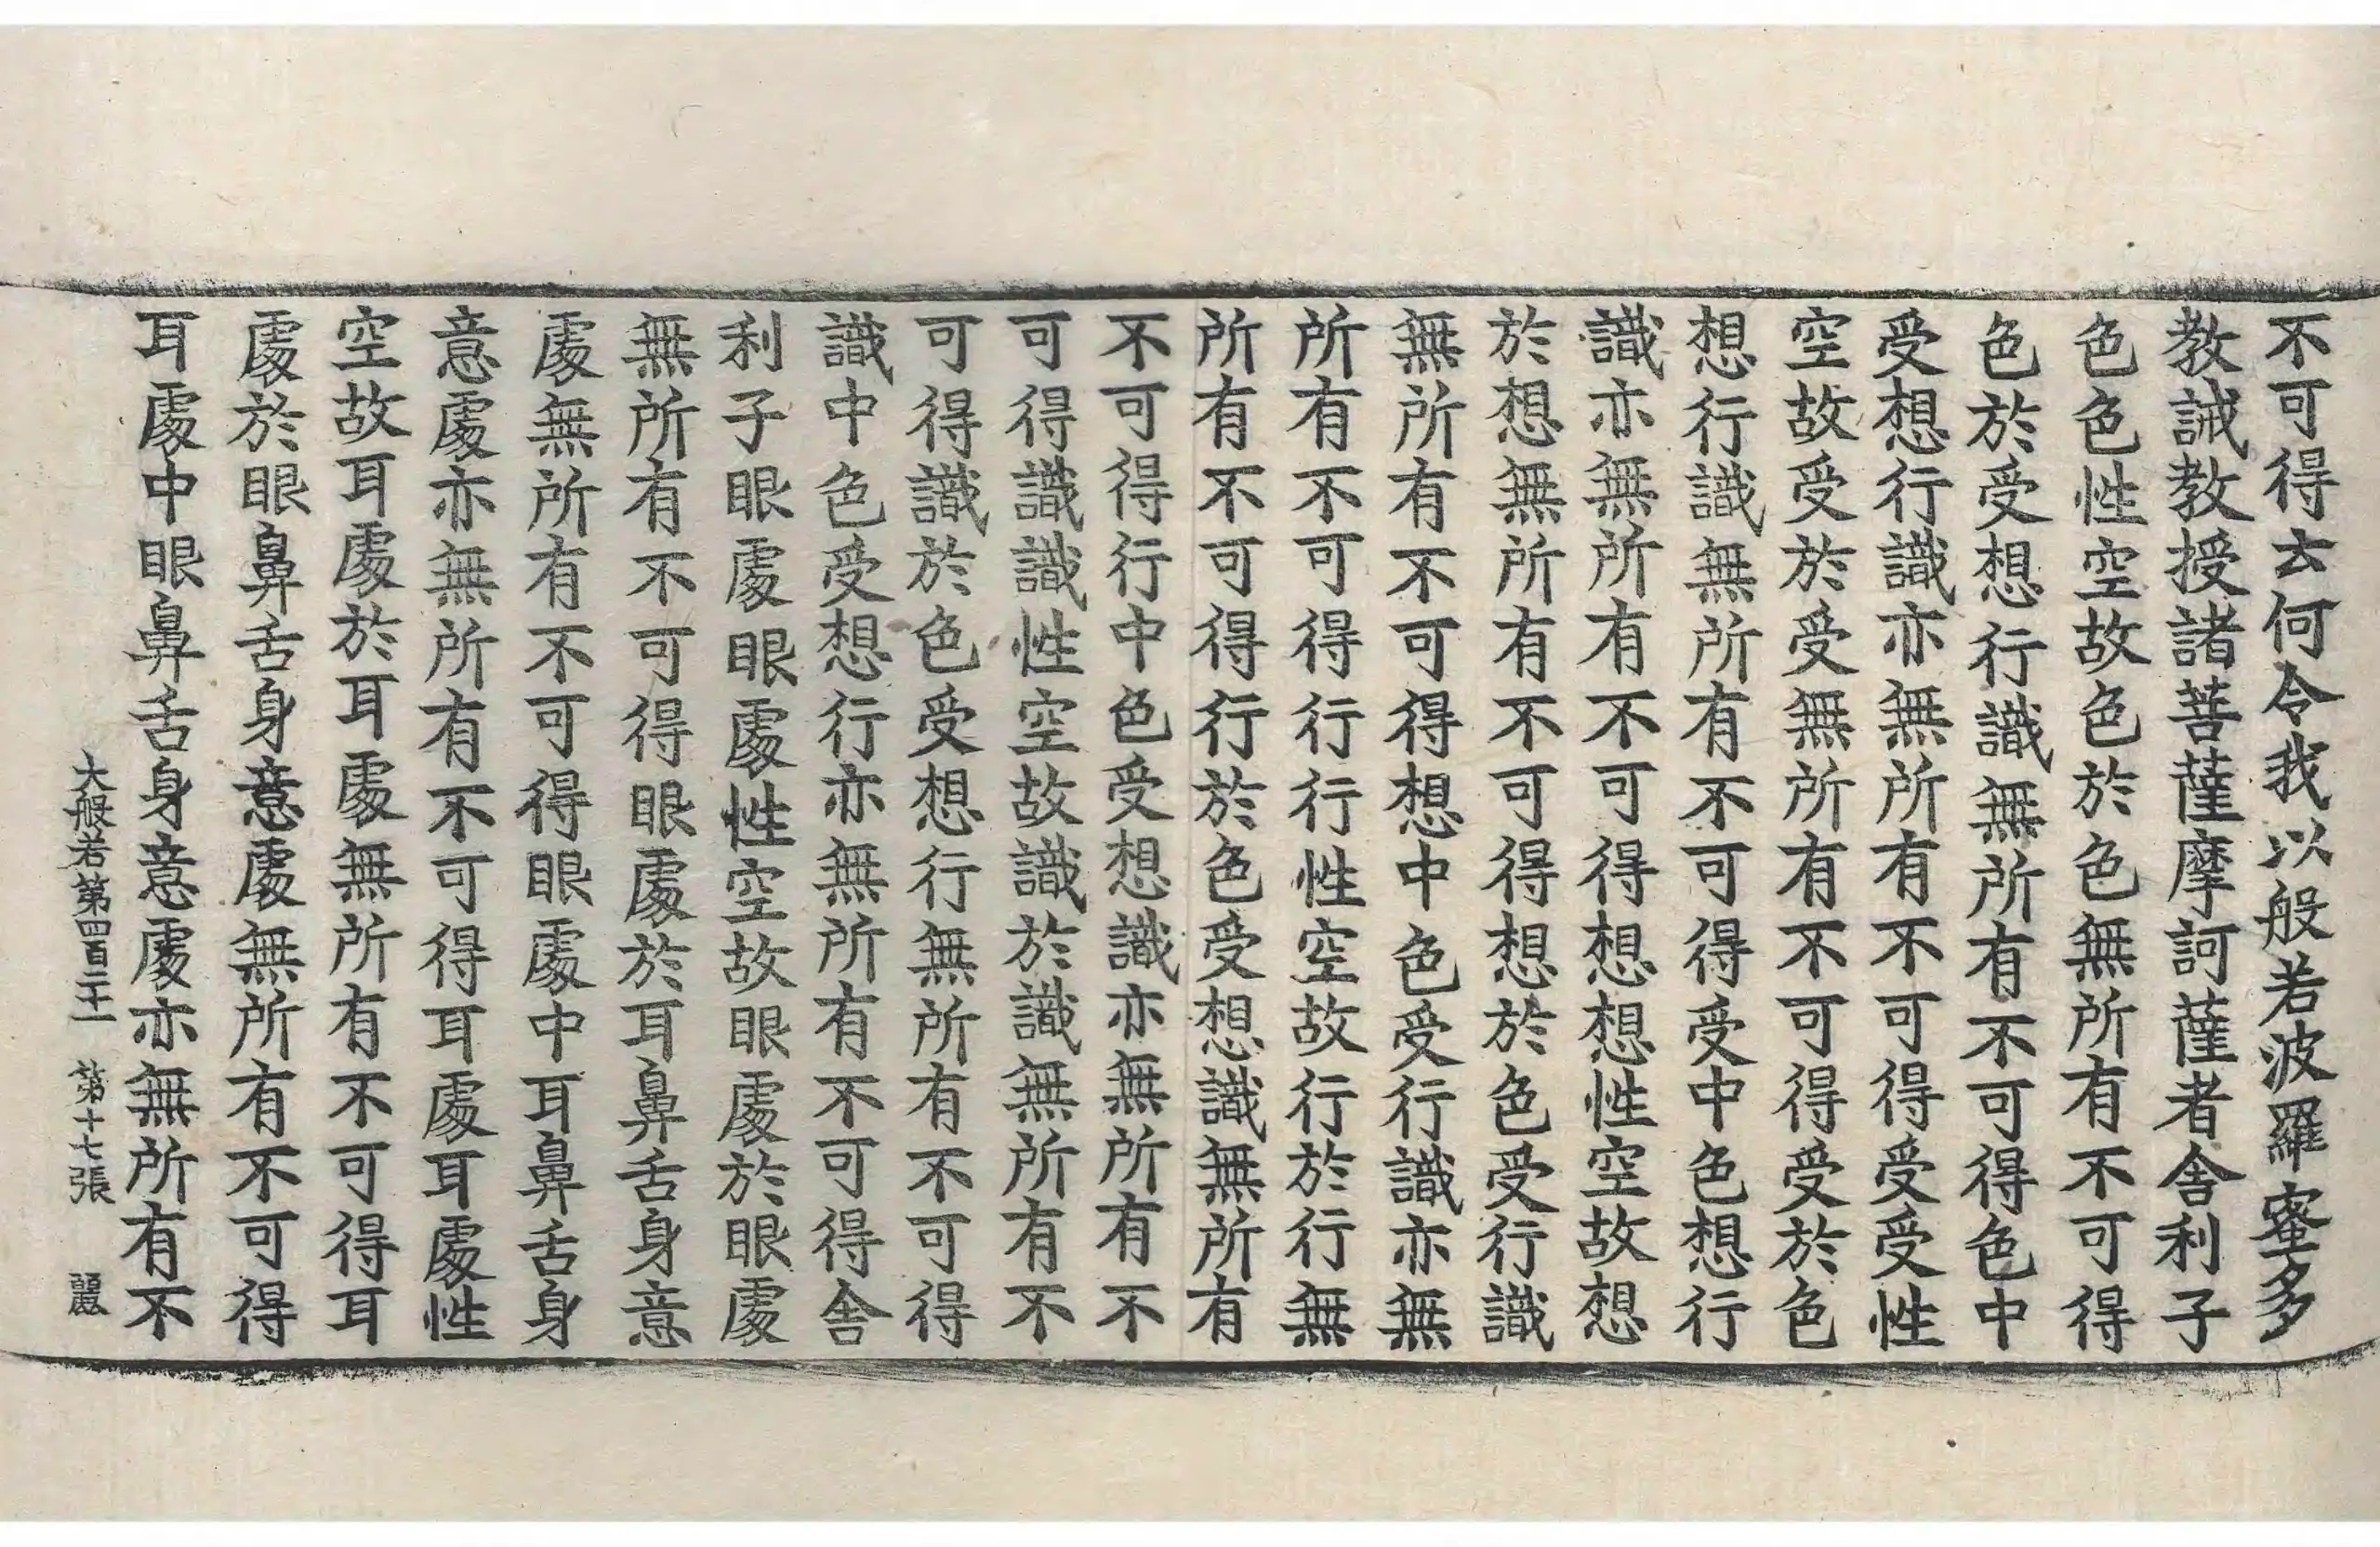 不可得云何令我以般若波羅蜜多
教誡教授諸菩薩摩訶薩者舍利子
色色性空故色於色無所有不可得
色於受想行識無所有不可得色中
受想行識亦無所有不可得受受性
空故受於受無所有不可得受於色
想行識無所有不可得受中色想行
識亦無所有不可得想想性空故想
於想無所有不可得想於色受行識
無所有不可得想中色受行識亦無
所有不可得行行性空故行於行無
所有不可得行於色受想識無所有
不可得行中色受想識亦無所有不
可得識識性空故識於識無所有不
可得識於色受想行無所有不可得
識中色受想行亦無所有不可得舍
利子眼處眼處性空故眼處於眼處
無所有不可得眼處於耳鼻舌身意
處無所有不可得眼處中耳鼻舌身
意處亦無所有不可得耳處耳處性
空故耳處於耳處無所有不可得耳
處於眼鼻舌身意處無所有不可得
耳處中眼鼻舌身意處亦無所有不
大般若第四百二十一 第十七張 麗